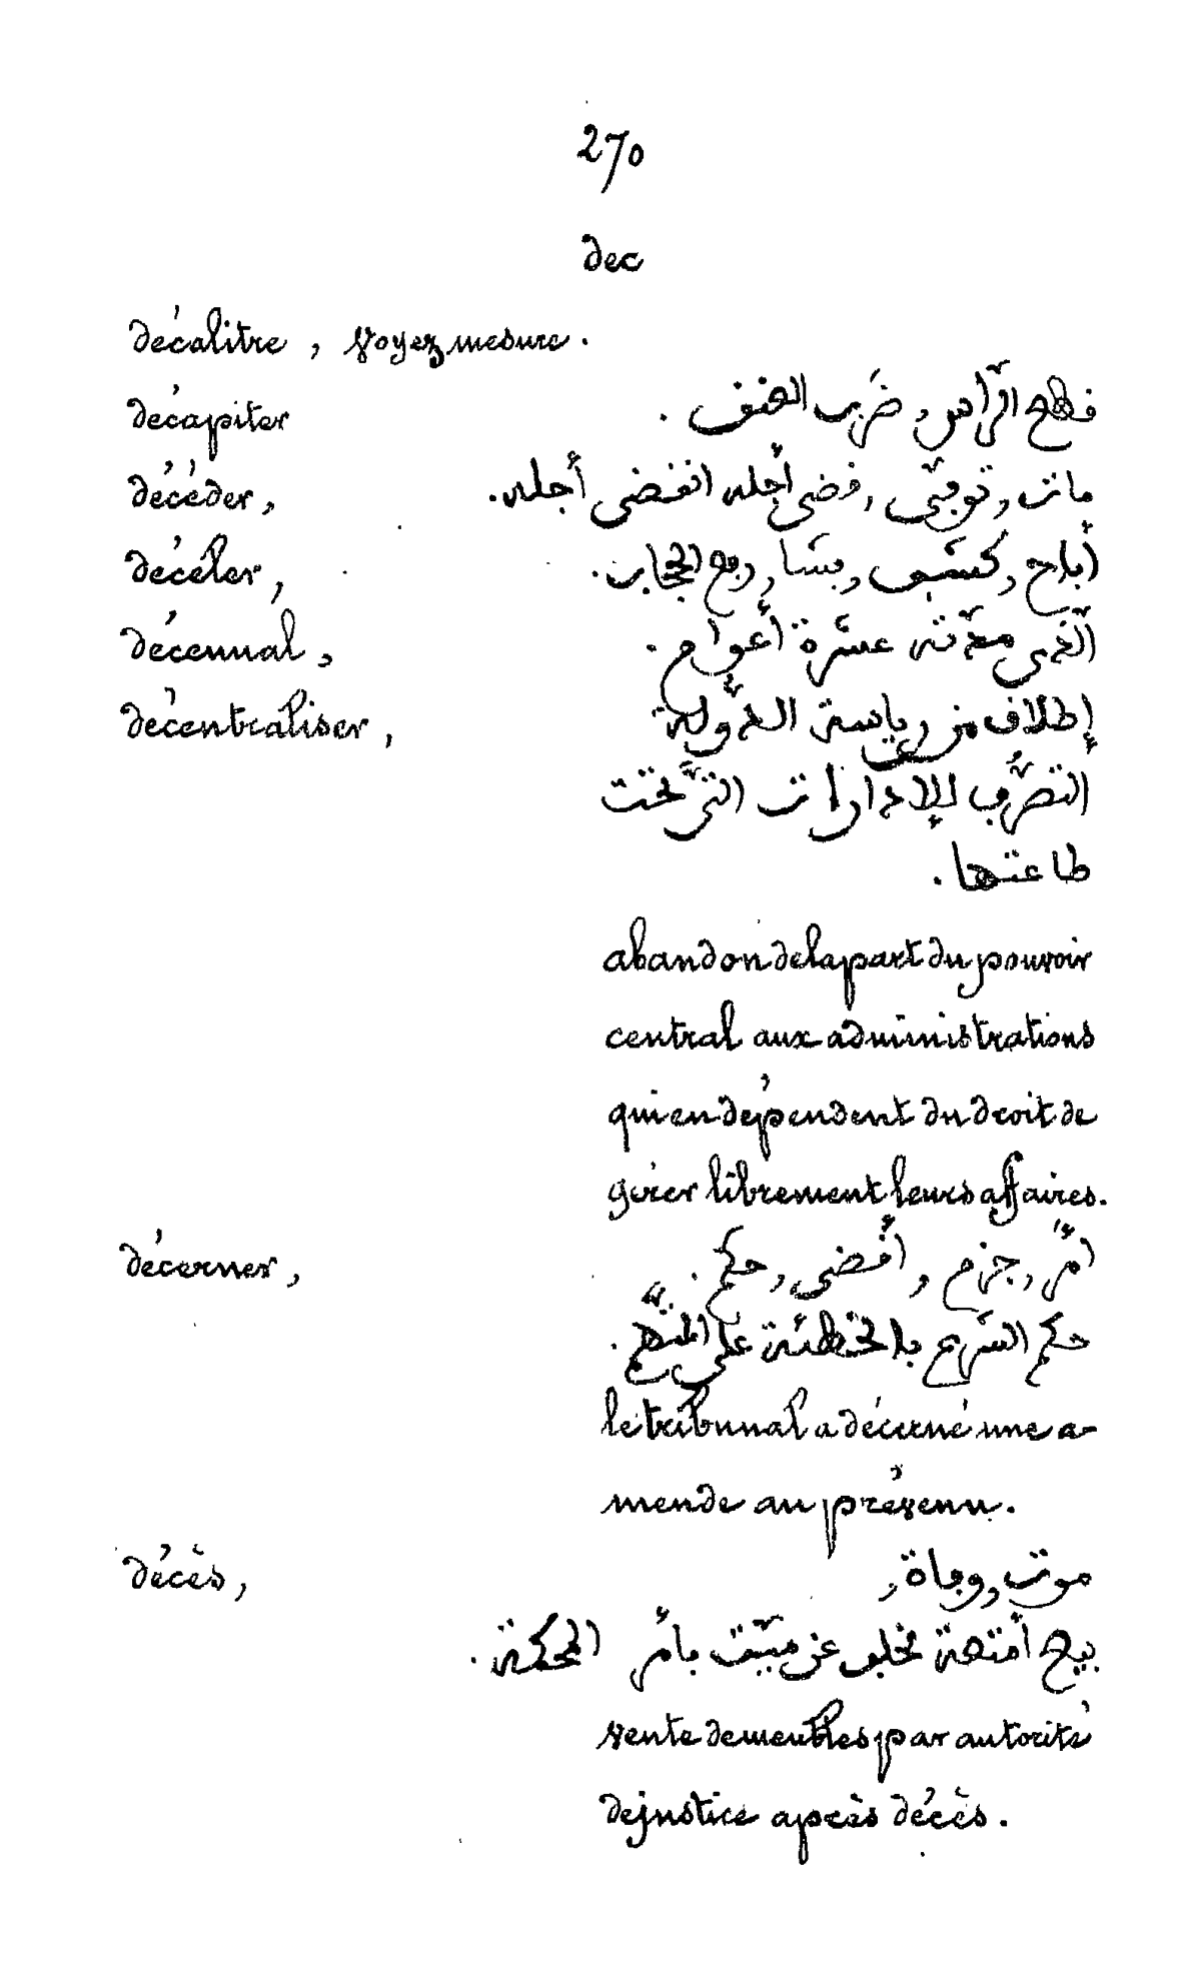 270
dec
décalitre, voyez mesure.
décapiter قطع الرّاس, ضرَب العنق.
décéder, مات, توفّى, قضى أجله انقضى أجله.
décéler, أباح, كشَف, فشَا, رفع الحجاب.
décennal, الّذى مدّته عشرَة أعوام.
décentraliser, إطلاق من رياسة الدّولة
التصرّف للإدارات الّتى تحت
طاعتها.
abandon de la part du pouvoir
central aux administrations
qui en dépendent du droit de
gérer librement leurs affaires.
décerner, أمّر, جزم, أقضى, حكم.
حكم الشرَع بالخطئة على المتّهم.
le tribunal a décerné une a-
mende au prévenu.
décès, موت, وفاة,
بيع أمتعة تخلف عن ميّت بأمر المحكمة.
vente de meubles par autorité
de justice après décès.